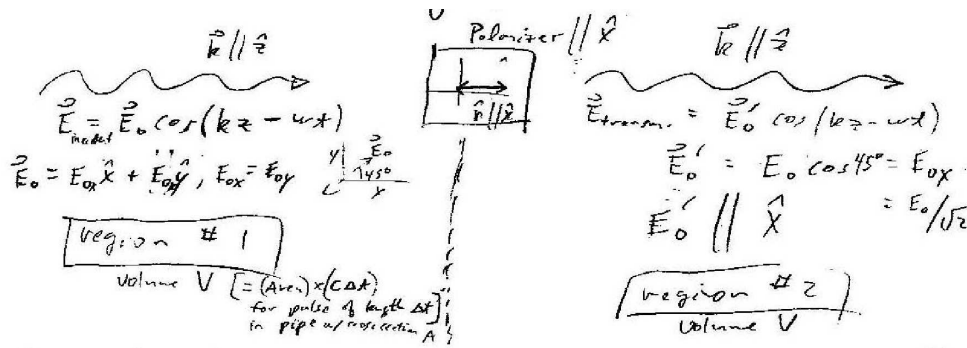 k⃗ // ẑ
E⃗incident = E⃗₀ cos(kz - ωt)
E⃗₀ = E₀ₓ x̂ + E₀y ŷ, E₀ₓ = E₀y
y E⃗₀
45°
x
region # 1
volume V [= (Area) × (cΔt)
for pulse of length Δt
in pipe w/ cross section A]
Polarizer // x̂
n̂ // x̂
k⃗ // ẑ
E⃗transm. = E⃗₀' cos(kz - ωt)
E⃗₀' = E₀ cos 45° = E₀ₓ
= E₀/√2
E⃗₀' // x̂
region # 2
volume V